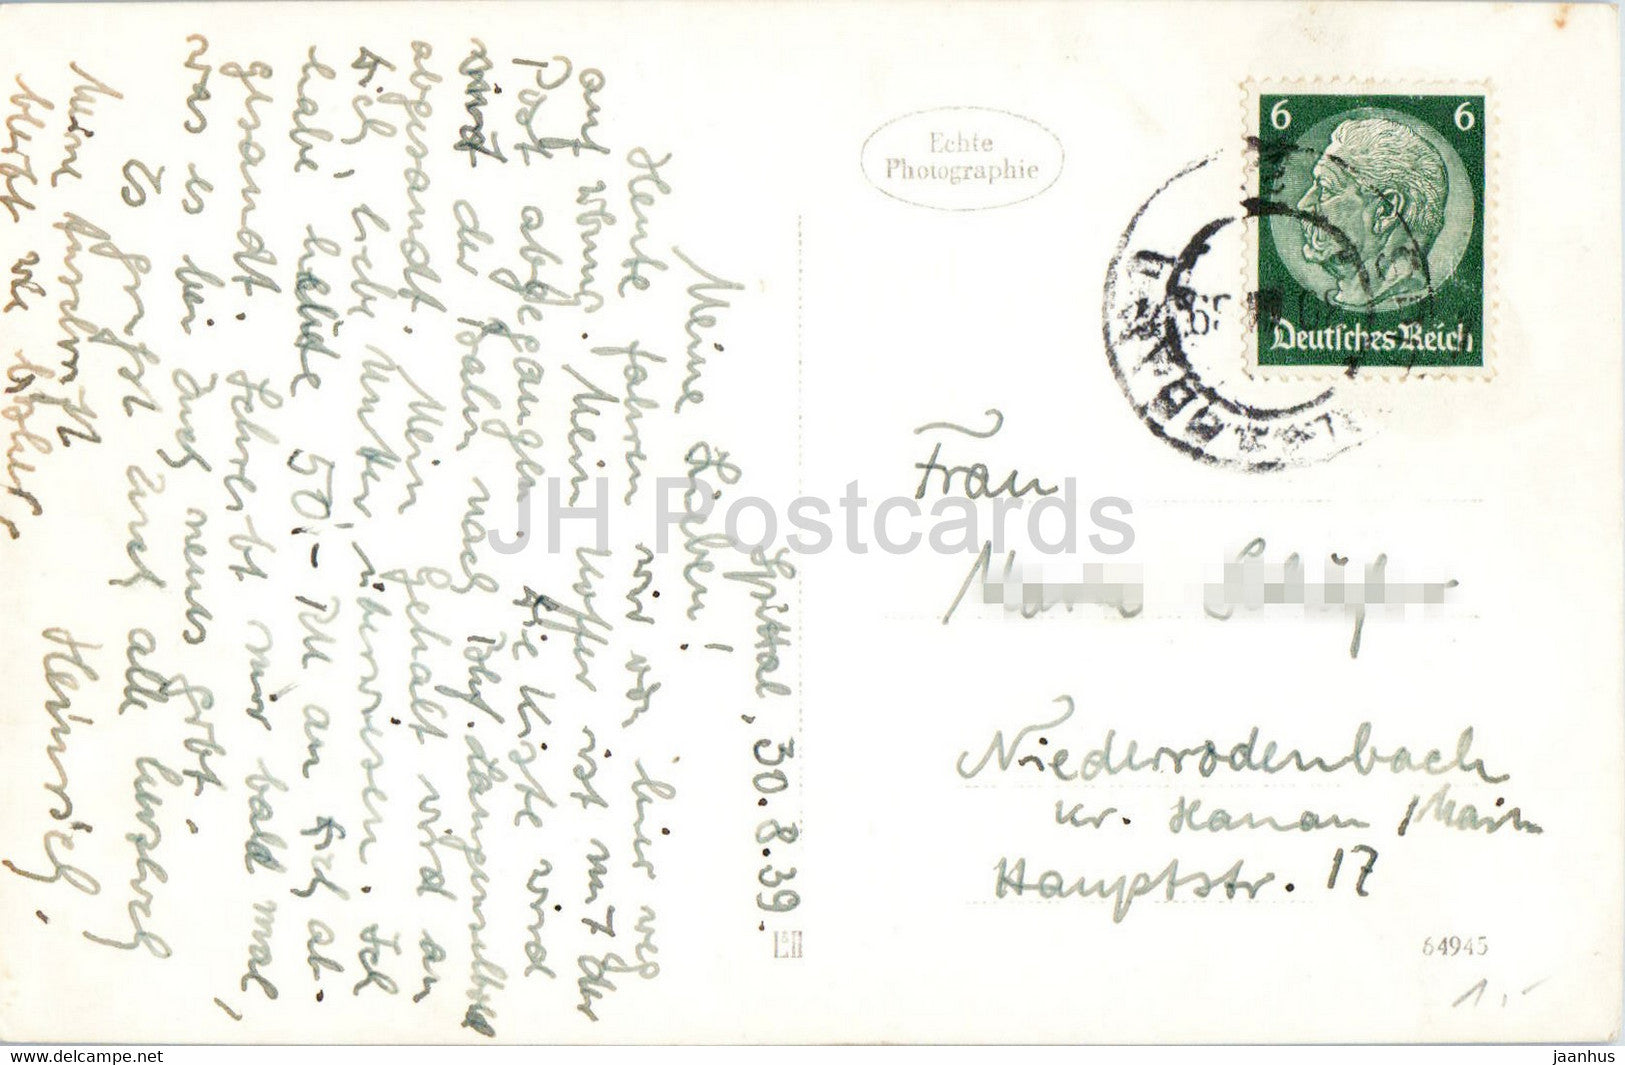 Spittal, 30.8.39.
Meine Lieben!
Heute fahren wir von hier weg
auf Mein Koffer ist mit der
Post abgegangen. Die Kiste wird
mit der Bahn nach
abgesandt. Mein Gehalt wird an
Dich, liebe Mutter, überwiesen. Ich
habe heute 50,- RM an Dich ab-
gesandt. Schreibt mir bald mal,
was es bei Euch neues gibt.
Es grüßt Euch alle herzlich
Heinrich.
Meine Anschrift
bleibt wie bisher.
Echte
Photographie
6 6
Deutsches Reich
Frau
Niederrodenbach
Kr. Hanau / Main
Hauptstr. 17
64945
1.-
JH Postcards
www.delcampe.net
jaanhus